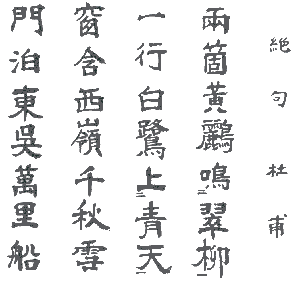 絶句 杜甫
兩箇黃鸝鳴二翠柳一
一行白鷺上二青天一
窗含西嶺千秋雪
門泊東吳萬里船